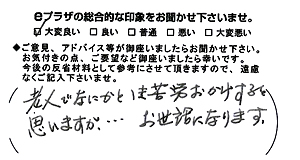 eプラザの総合的な印象をお聞かせ下さいませ。
☑大変良い □良い □普通 □悪い □大変悪い
◆ご意見、アドバイス等が御座いましたらお聞かせ下さい。
お気付きの点、ご要望など御座いましたら幸いです。
今後の反省材料として参考にさせて頂きますので、遠慮
なくご記入下さいませ。
老人でなにかとご苦労おかけすると
思いますが… お世話になります。